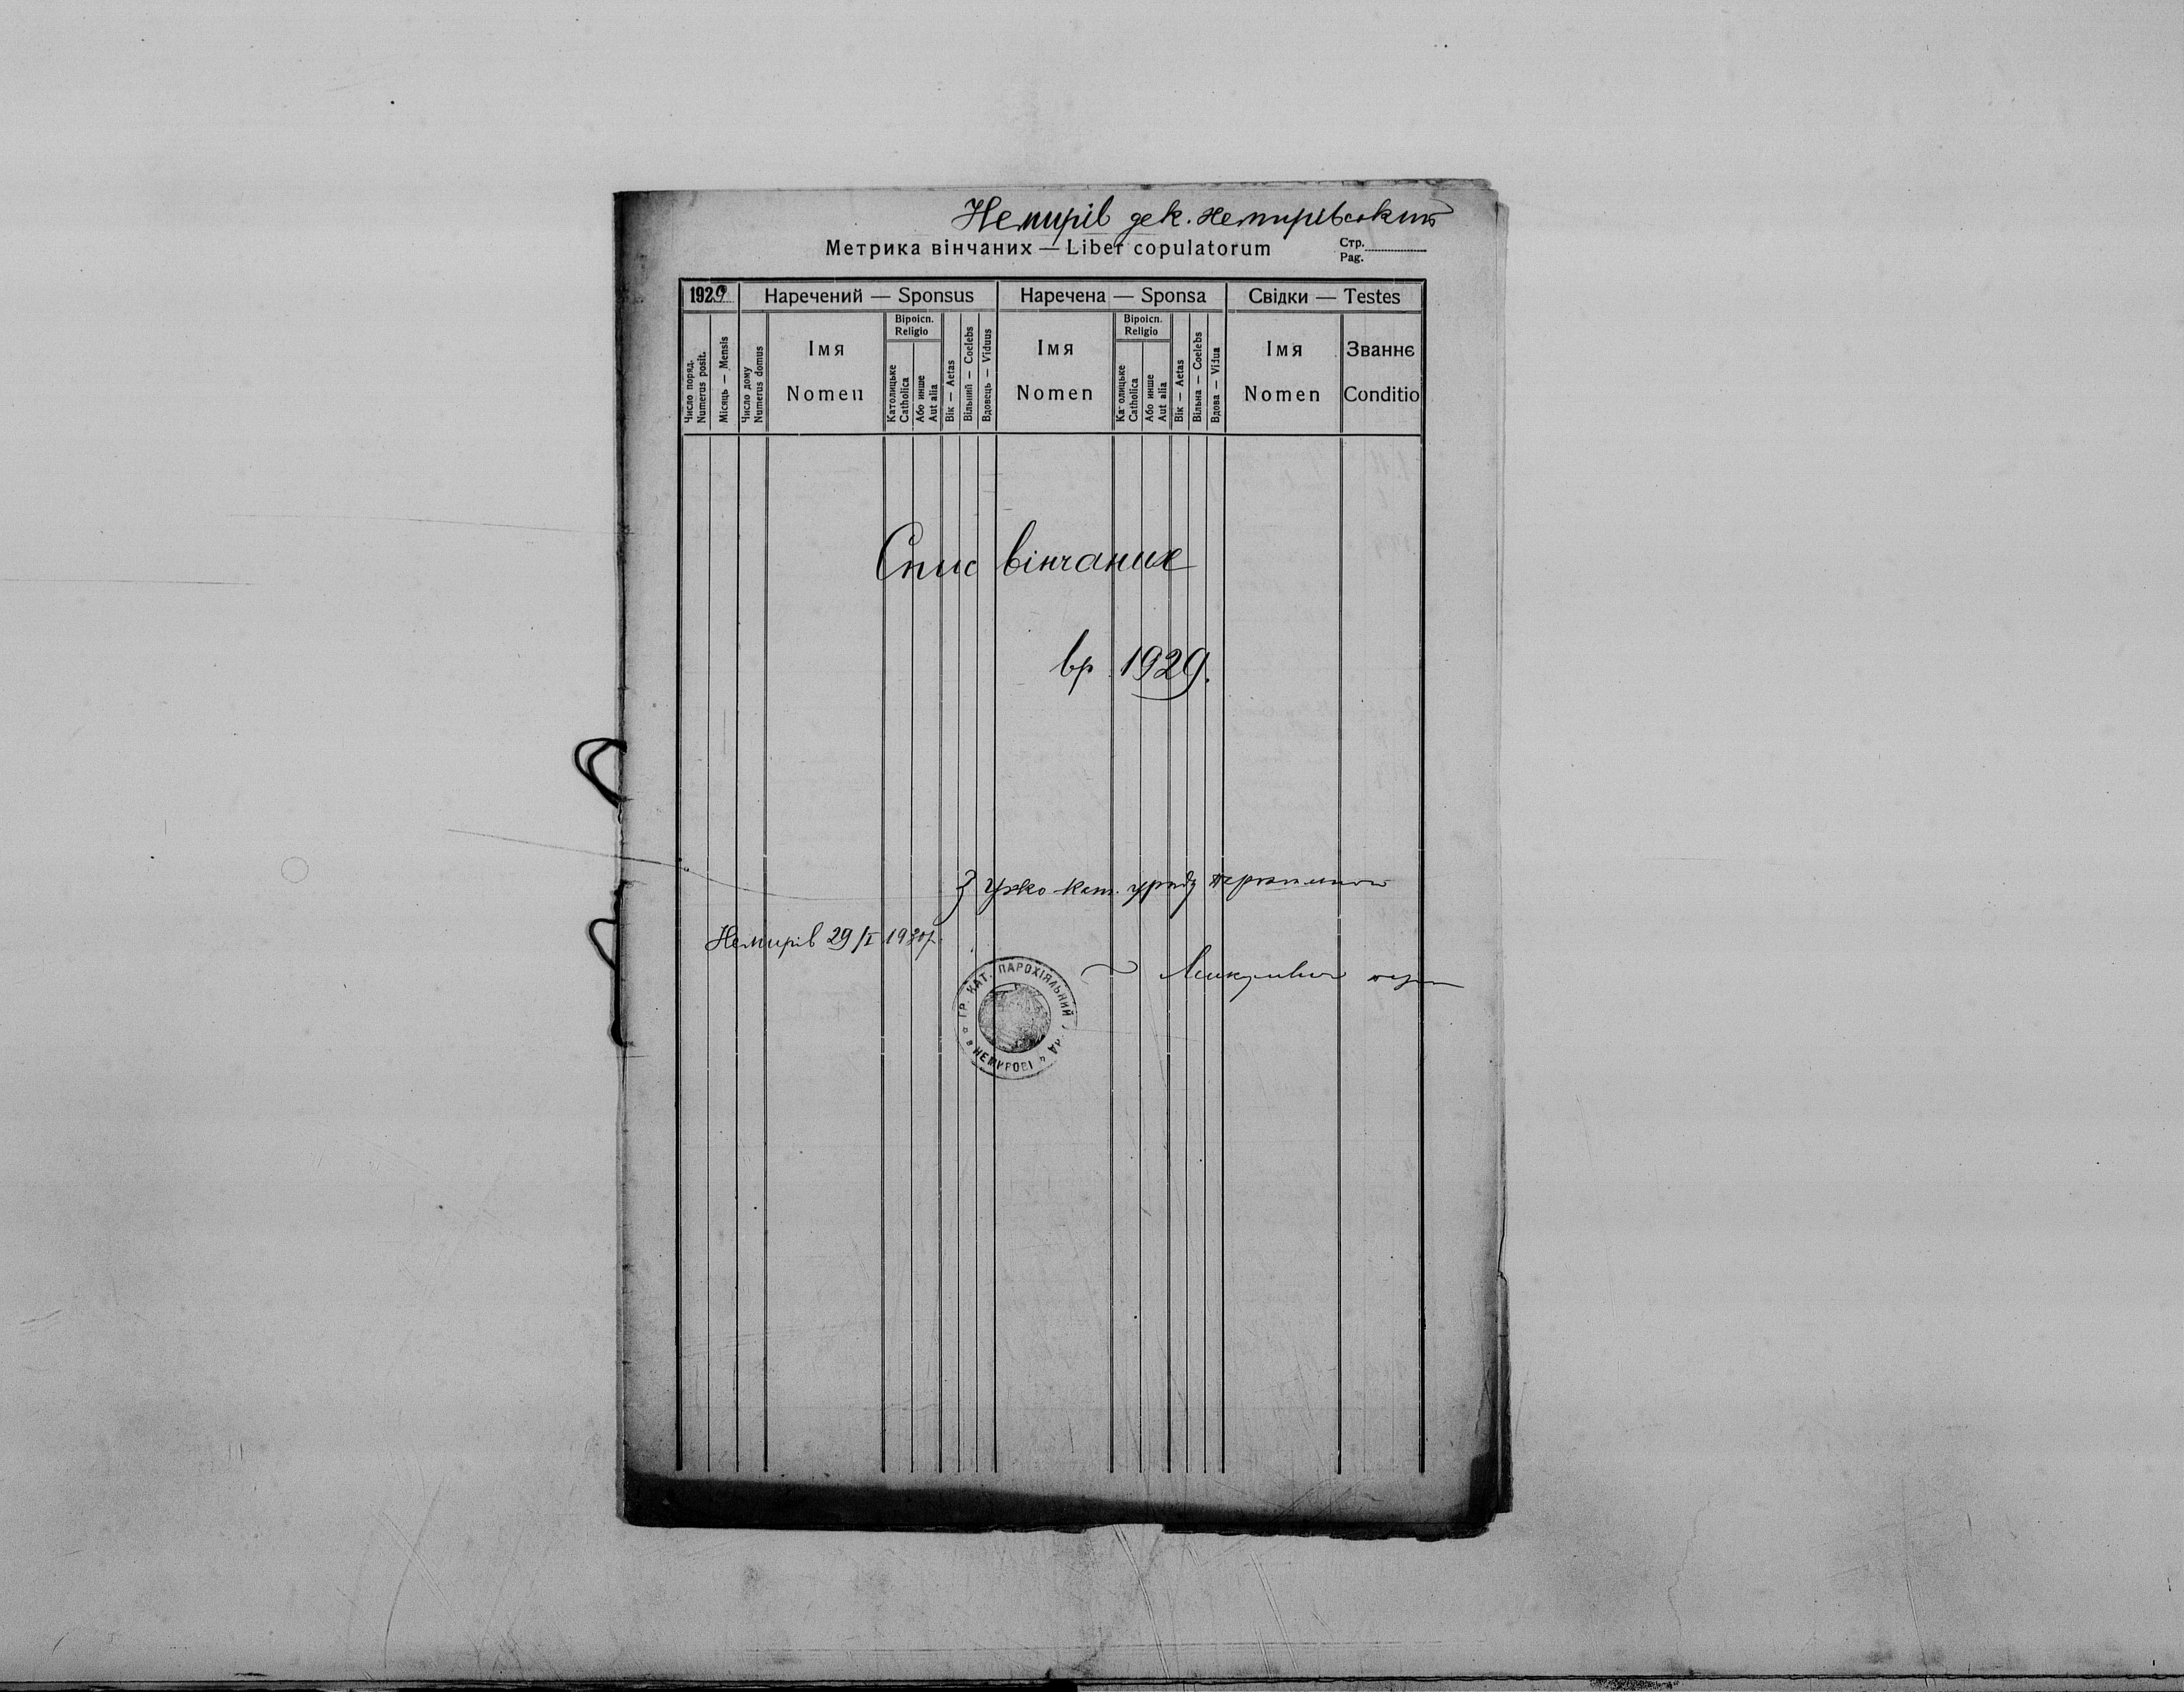 Немирів дек. Немирівський
Метрика вінчаних — Liber copulatorum
Стр.
Pag.
1929
Наречений — Sponsus
Наречена — Sponsa
Свідки — Testes
Число поряд.
Numerus posit.
Місяць — Mensis
Число дому
Numerus domus
Імя
Nomen
Віроісп.
Religio
Католицьке
Catholica
Або инше
Aut alia
Вік — Aetas
Вільний — Coelebs
Вдовець — Viduus
Імя
Nomen
Віроісп.
Religio
Ка олицьке
Catholica
Або инше
Aut alia
Вік — Aetas
Вільна — Coelebs
Вдова — Vidua
Імя
Nomen
Званнє
Conditio
Спис вінчаних
вр 1929.
З греко-кат. уряду
Немирів 29/I 1930р.
ГР. КАТ. ПАРОХІЯЛЬНИЙ
в НЕМИРОВІ